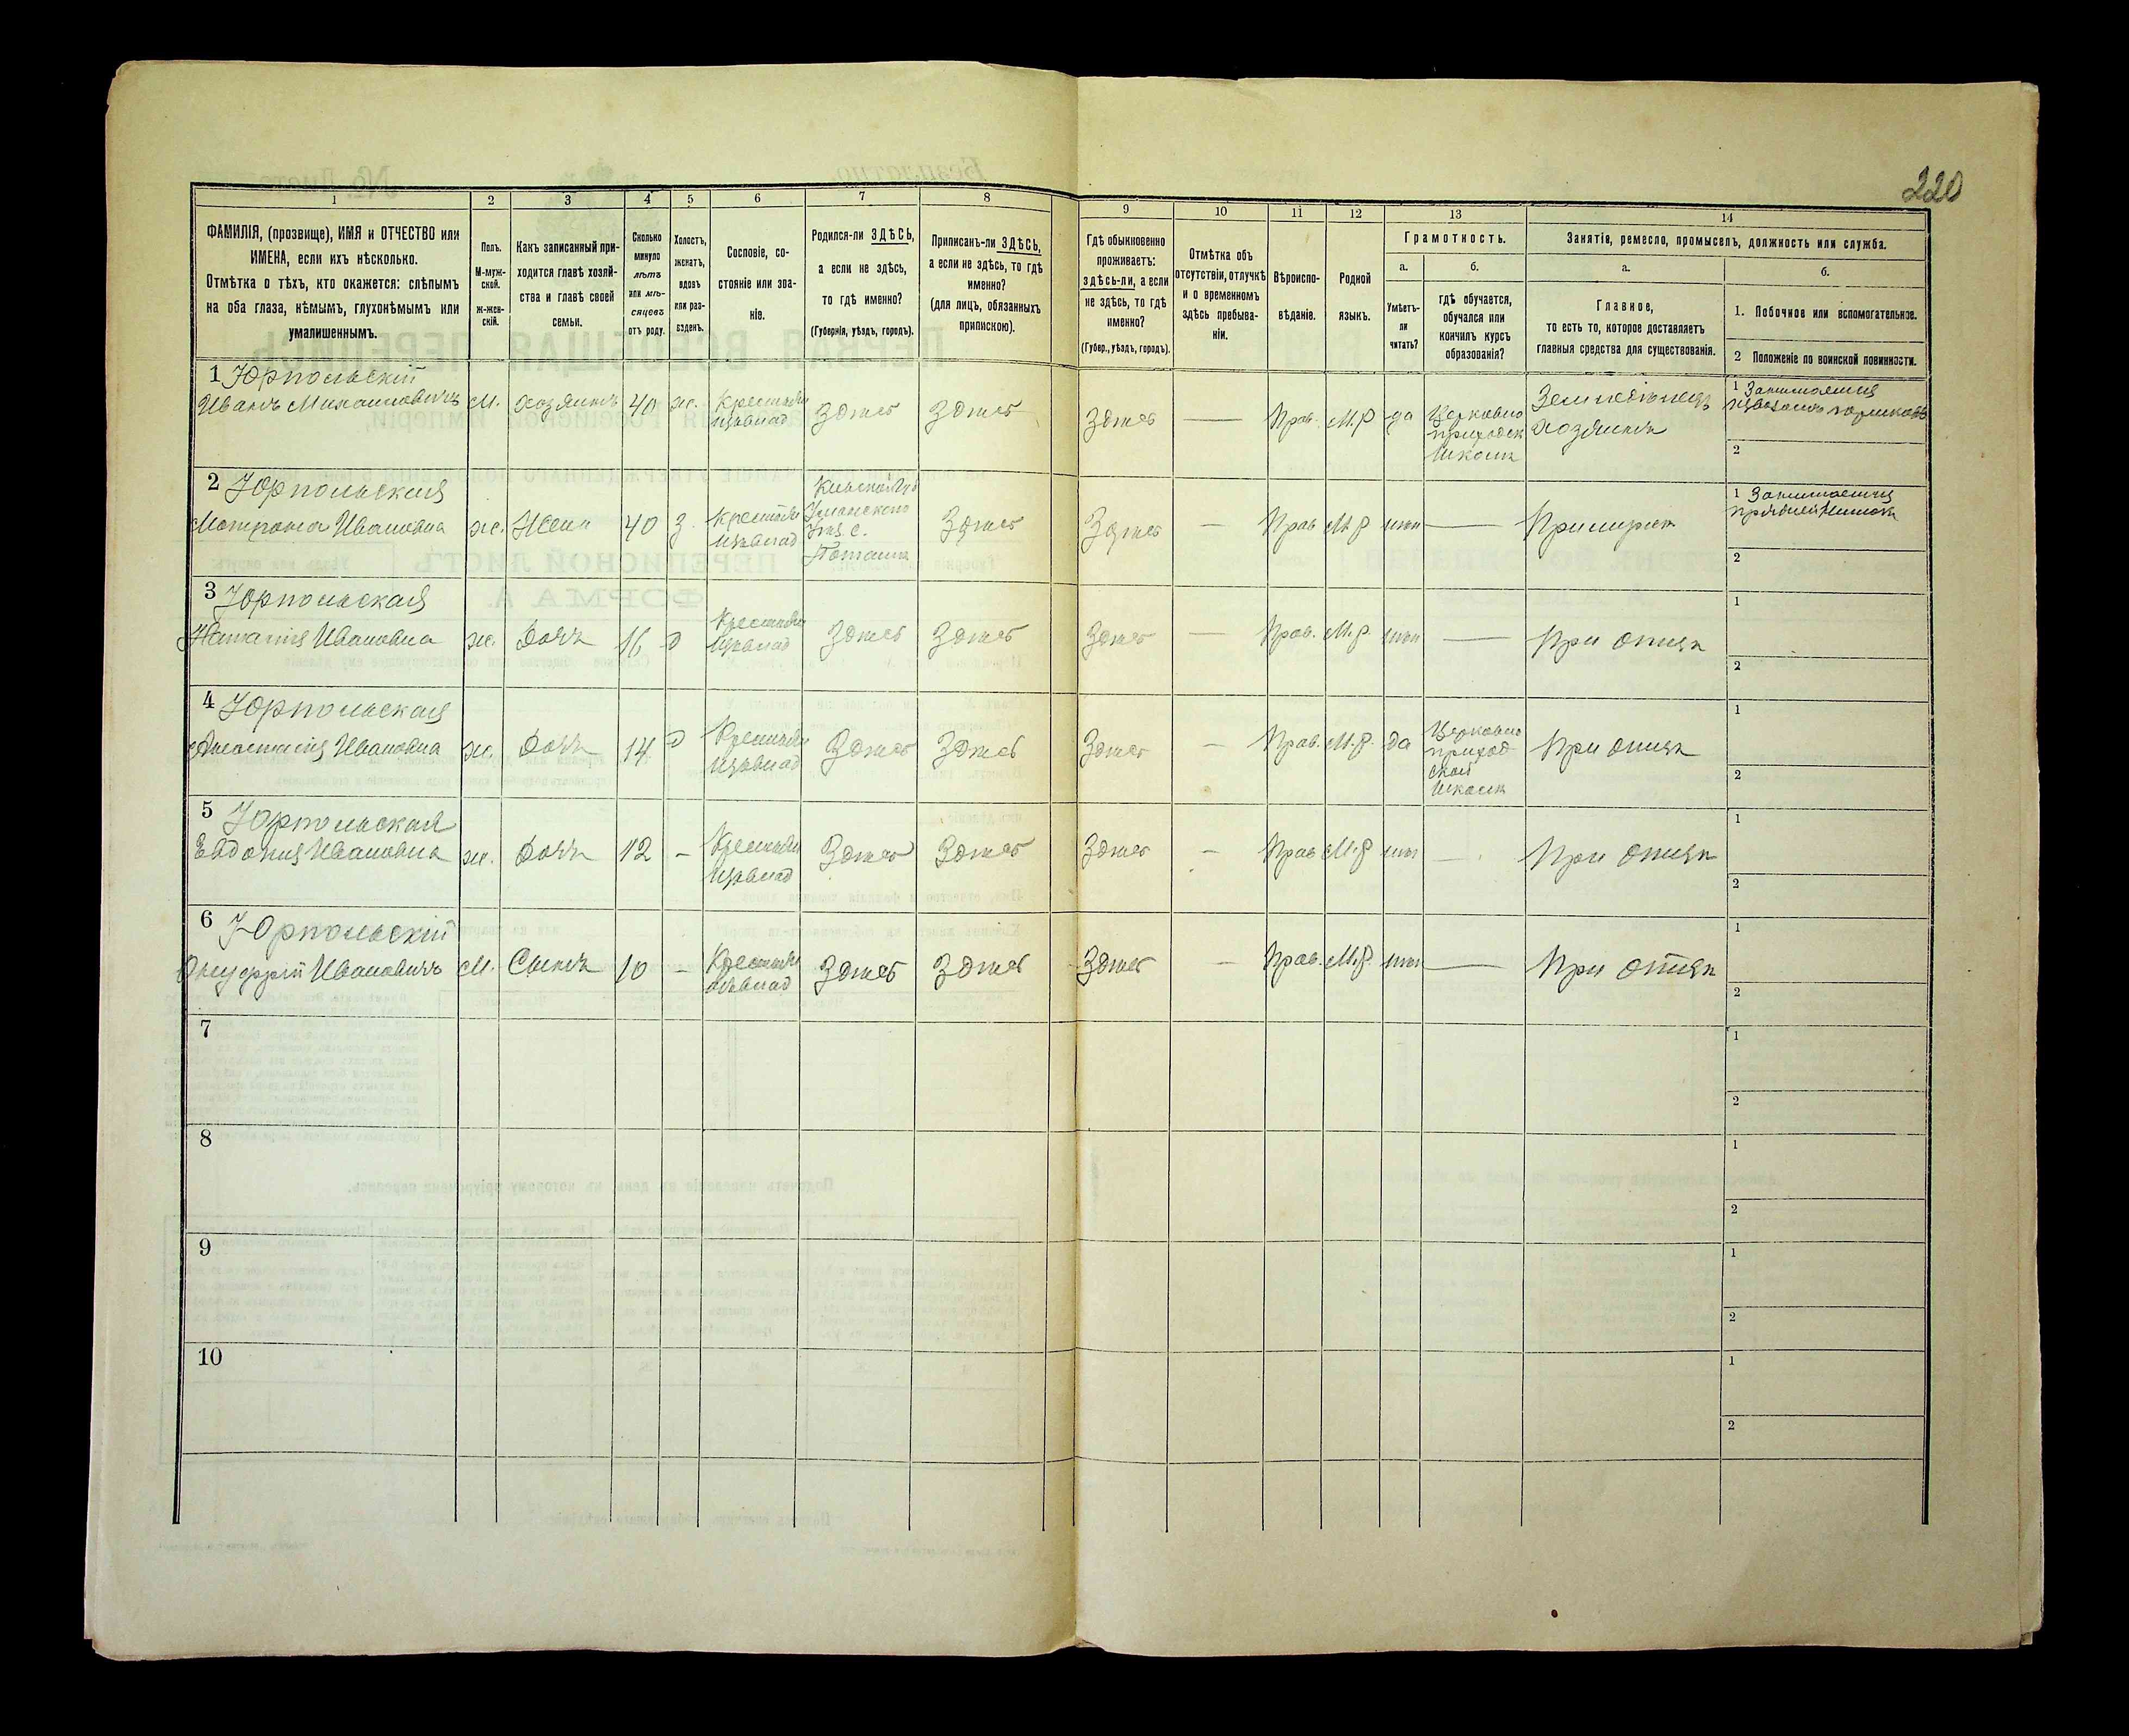 220
1
2
3
4
5
6
7
8
9
10
11
12
13
14
ФАМИЛІЯ, (прозвище), ИМЯ и ОТЧЕСТВО или
ИМЕНА, если ихъ нѣсколько.
Отмѣтка о тѣхъ, кто окажется: слѣпымъ
на оба глаза, нѣмымъ, глухонѣмымъ или
умалишеннымъ.
Полъ.
М-муж-
ской.
ж-жен-
скій.
Какъ записанный при-
ходится главѣ хозяй-
ства и главѣ своей
семьи.
Сколько
минуло
лѣтъ
или мѣ-
сяцевъ
отъ роду.
Холостъ,
женатъ,
вдовъ
или раз-
веденъ.
Сословіе, со-
стояніе или зва-
ніе.
Родился-ли ЗДѢСЬ,
а если не здѣсь,
то гдѣ именно?
(Губернія, уѣздъ, городъ).
Приписанъ-ли ЗДѢСЬ,
а если не здѣсь, то гдѣ
именно?
(для лицъ, обязанныхъ
припискою).
Гдѣ обыкновенно
проживаетъ:
здѣсь-ли, а если
не здѣсь, то гдѣ
именно?
(Губер., уѣздъ, городъ).
Отмѣтка объ
отсутствіи, отлучкѣ
и о временномъ
здѣсь пребыва-
ніи.
Вѣроиспо-
вѣданіе.
Родной
языкъ.
Грамотность.
а.
б.
Умѣетъ-
ли
читать?
гдѣ обучается,
обучался или
кончилъ курсъ
образованія?
Занятія, ремесло, промыселъ, должность или служба.
а.
б.
Главное,
то есть то, которое доставляетъ
главныя средства для существованія.
1. Побочное или вспомогательное.
2 Положеніе по воинской повинности.
1 Юрпольскій
Иванъ Михайловичъ м. хозяинъ 40 ж. Крестьян
изъ влад Здѣсь Здѣсь Здѣсь — Прав. М.Р да Церковно
приходск
школѣ
Земледѣлецъ
Хозяинъ
1 Занимается
2
2 Юрпольская
Матрона Ивановна ж. Жена 40 з. Крестьян
изъ влад
Кіевской Губ
Уманскаго
Уѣз. с.
Поташа
Здѣсь Здѣсь — Прав М.Р нѣт — При мужѣ
1 Занимается
2
3 Юрпольская
Наталія Ивановна ж. Дочь 16 д Крестьян
изъ влад Здѣсь Здѣсь Здѣсь — Прав. М.Р. нѣт — При отцѣ
1
2
4 Юрпольская
Анастасія Ивановна ж. Дочь 14 д Крестьян
изъ влад Здѣсь Здѣсь Здѣсь — Прав. М.Р. да Церковно
приход
ской
школѣ
При отцѣ
1
2
5 Юрпольская
Евдокия Ивановна ж. Дочь 12 — Крестьян
изъ влад Здѣсь Здѣсь Здѣсь — Прав М.Р нѣт — При отцѣ
1
2
6 Юрпольскій
Онуфрій Ивановичъ М. Сынъ 10 — Крестьян
изъ влад Здѣсь Здѣсь Здѣсь — Прав. М.Р. нѣт — При отцѣ
1
2
7
1
2
8
1
2
9
1
2
10
1
2